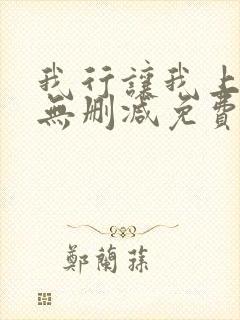 我行讓我上
無刪減免費
鄭蘭蓀